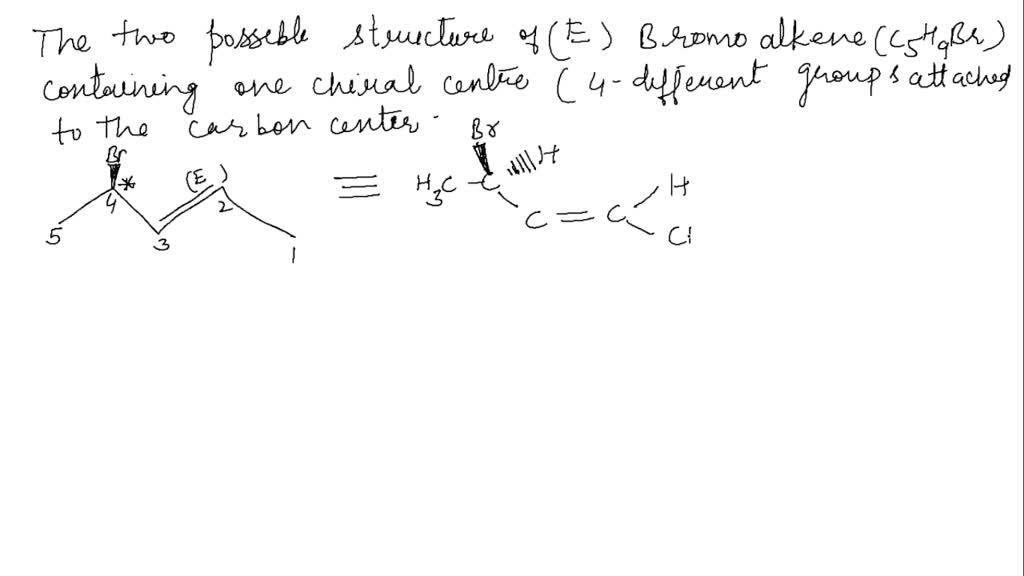 The two possible structure of (E) Bromo alkene (C5H9Br)
containing one chiral centre ( 4-different groups attached
to the carbon center.
Br
Br
H
* (E)
4 2
H3C - C
H
C = C
5 3
Cl
1